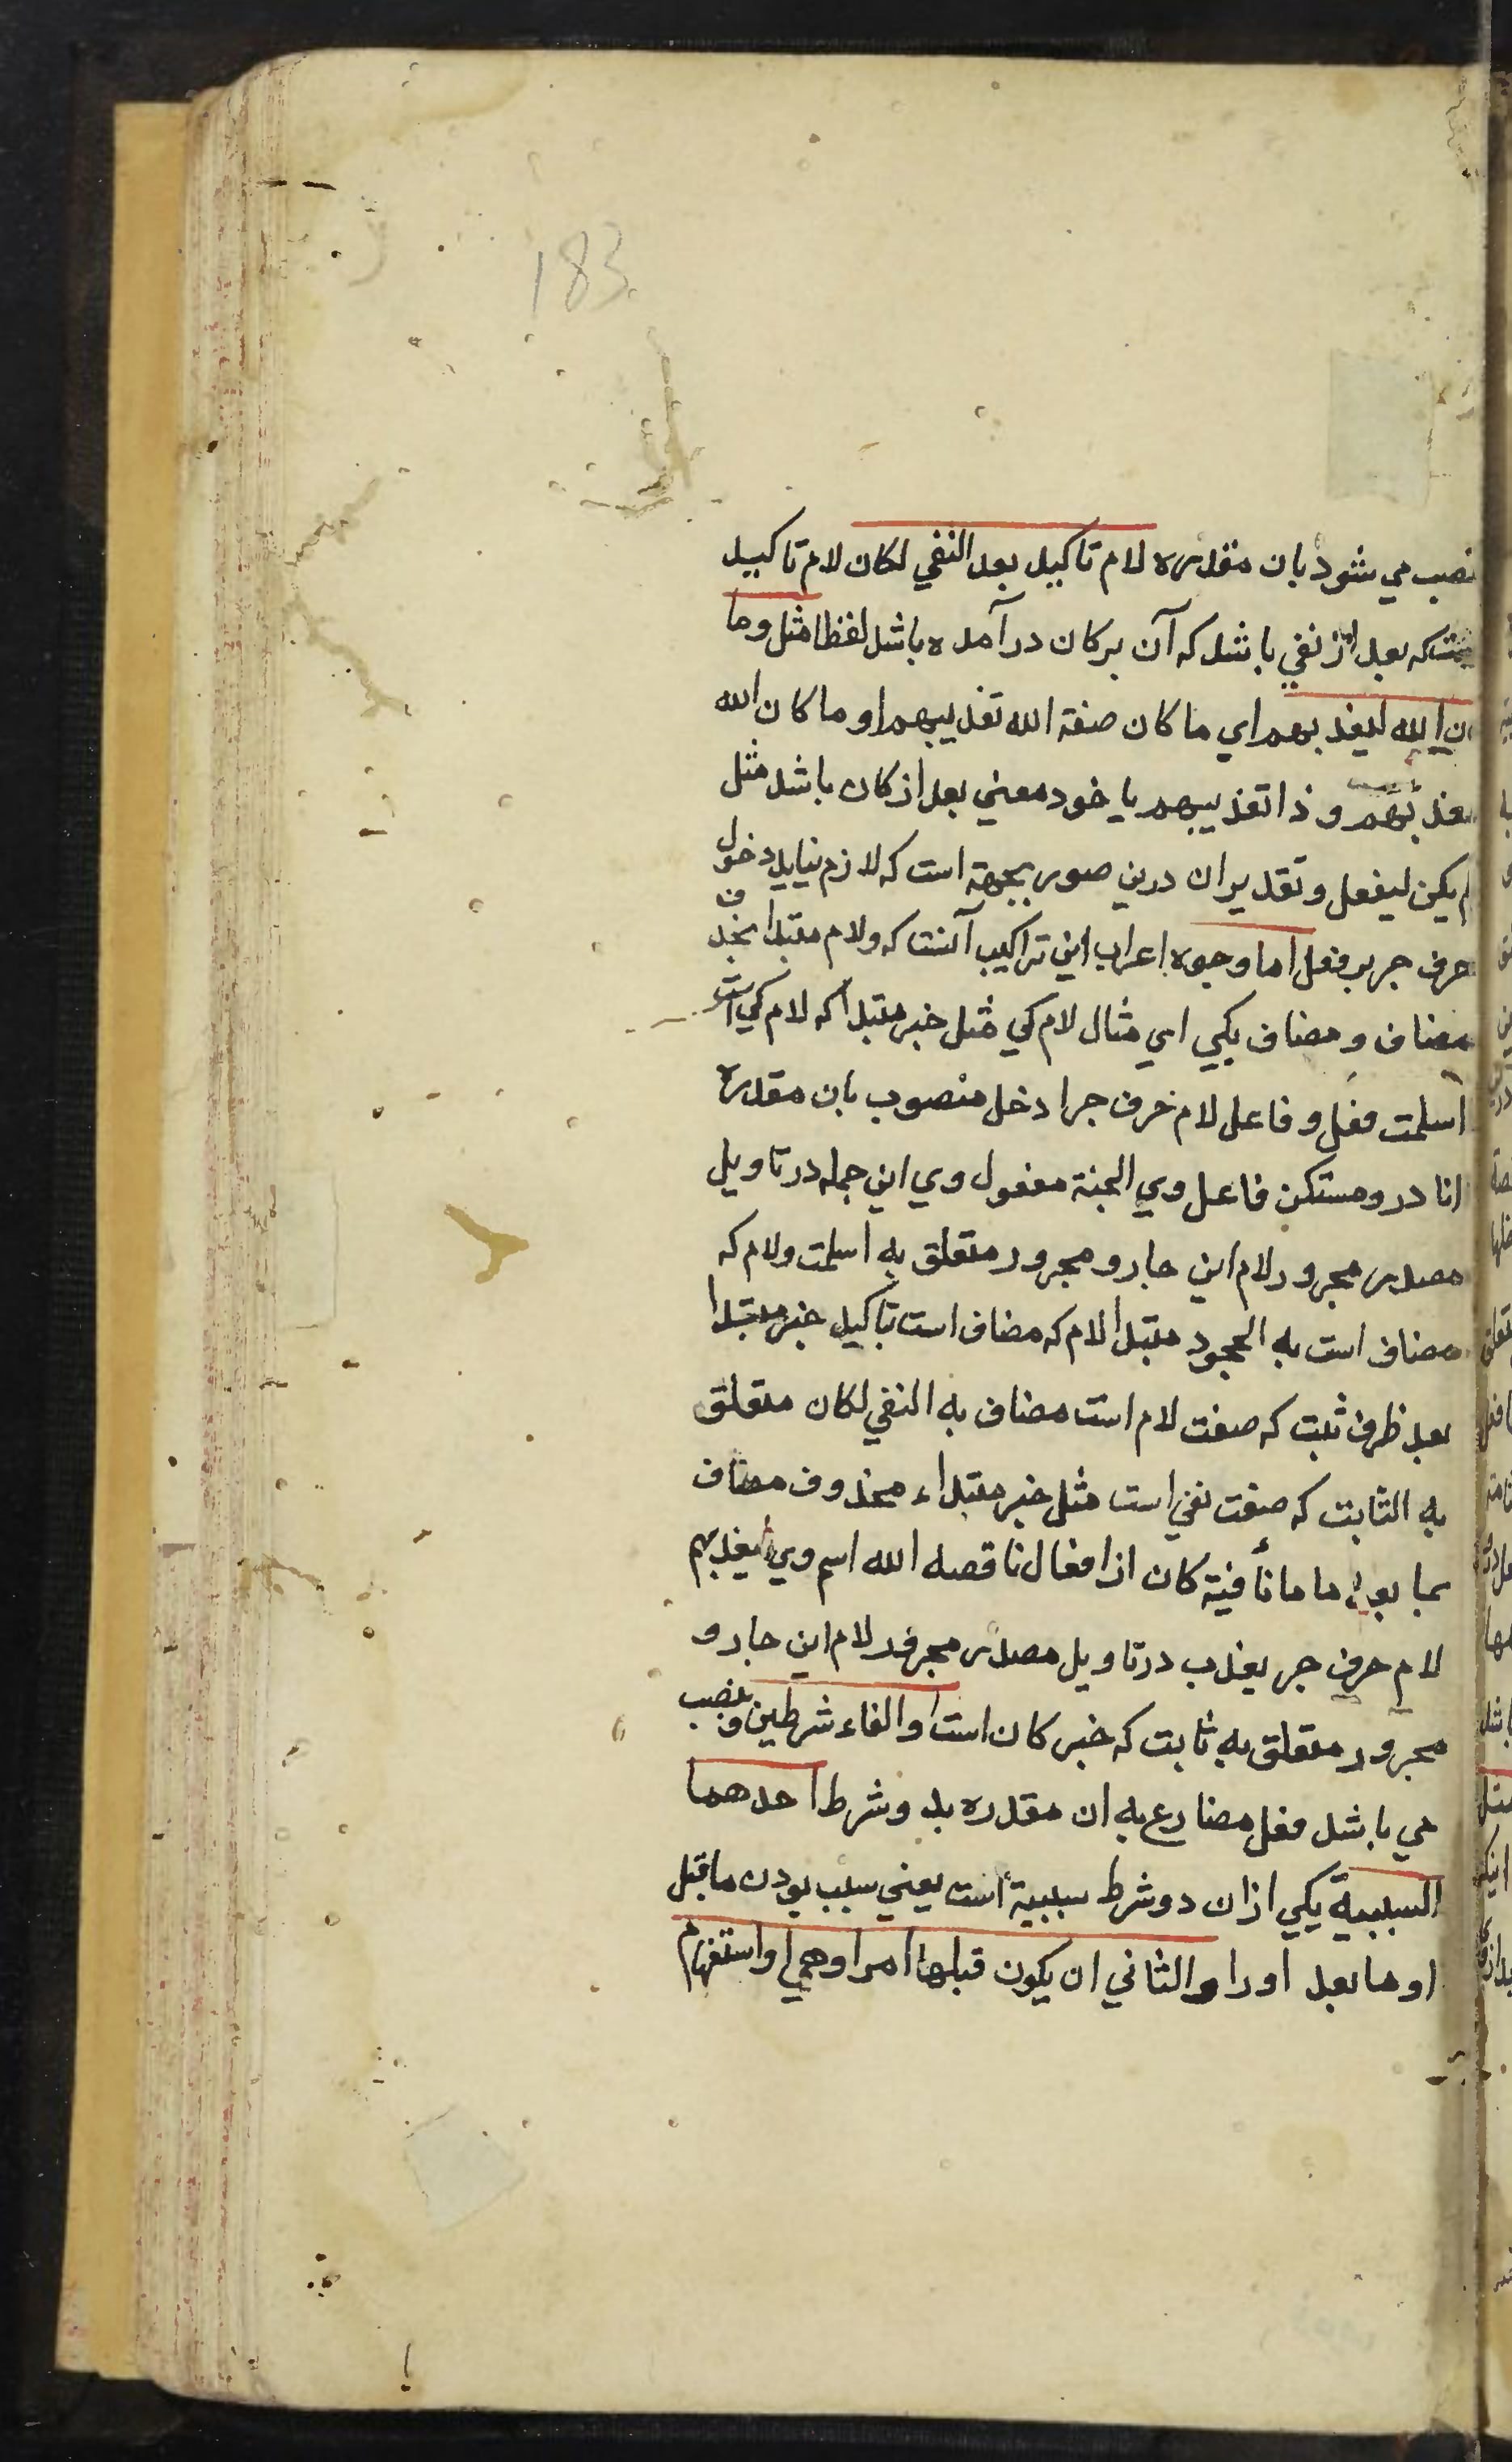 183
نصب مي شود بان مقدره لام تاكيد بعد النفي لكان لام تاكيد
كه بعد از نفي باشد كه آن بر كان در آمده باشد لفظا مثل وما
ن الله ليعذبهم اي ما كان صفة الله تعذيبهم او ما كان الله
يعذبهم و ذا تعذيبهم يا خود معني بعد از كان باشد مثل
لم يكن ليفعل و تقدير ان درين صور بجهة است كه لازم نيايد دخول
حرف جر بر فعل اما وجوه اعراب اين تراكيب آنست كه ولام مبتدا بحذف
مضاف و مضاف بكي اي مثال لام كي مثل خبر مبتدا كه لام كي است
اسلمت فعل و فاعل لام حرف جر ادخل منصوب بان مقدره
انا درو مستكن فاعل وي الجنة مفعول وي اين جمله در تاويل
مصدر مجرور لام اين جار و مجرور متعلق به اسلمت ولام كه
مضاف است به الجحود مبتدا لام كه مضاف است تاكيد خبر مبتدا
بعد ظرف ثبت كه صفت لام است مضاف به النفي لكان متعلق
به الثابت كه صفت نفي است مثل خبر مبتداء محذوف مضاف
بما بعد ما ما نافية كان از افعال ناقصه الله اسم وي ليعذبهم
لام حرف جر يعذب در تاويل مصدر مجرور لام اين جار و
مجرور متعلق به ثابت كه خبر كان است والفاء شرطين و نصب
مي باشد فعل مضارع به ان مقدره بد و شرط احدهما
السببية يكي ازان دو شرط سببية است يعني سبب بودن ماقبل
او مابعد اورا والثاني ان يكون قبلها امر او نهي او استفهام